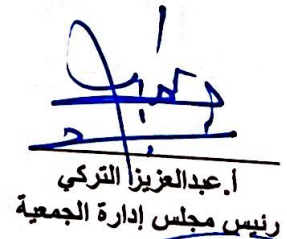 أ.عبدالعزيز التركي
رئيس مجلس إدارة الجمعية